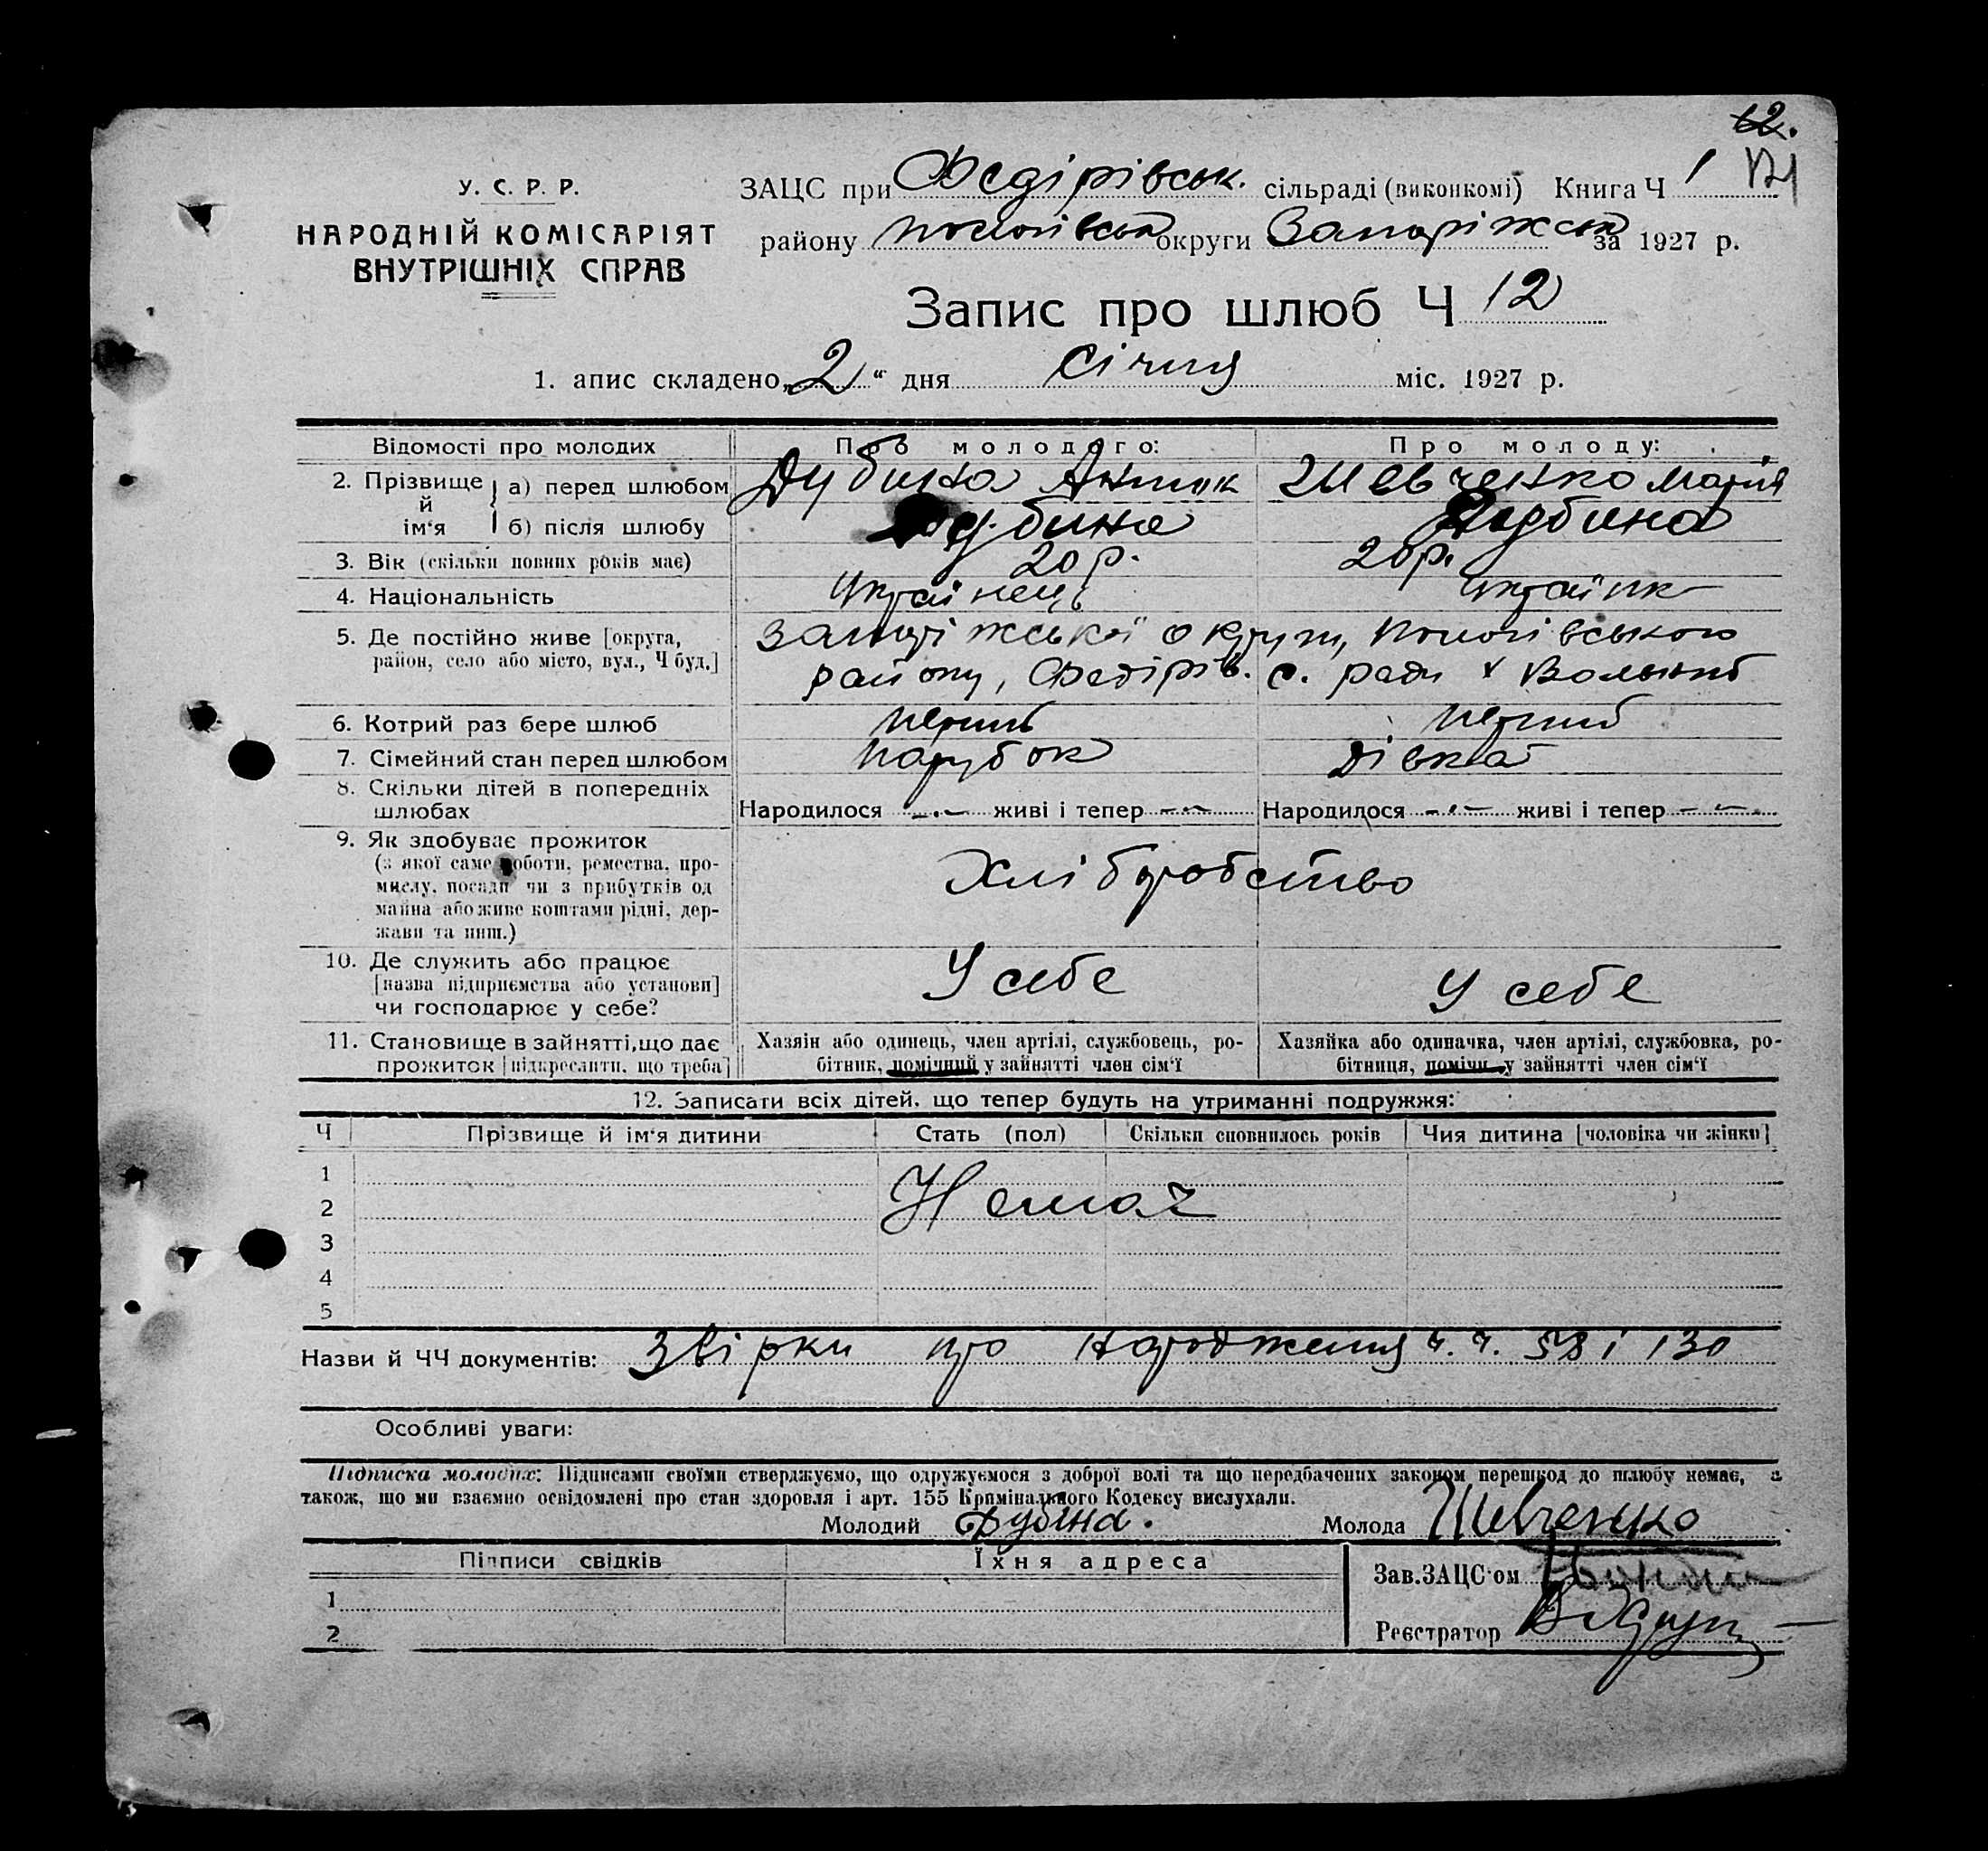 12.
У. С. Р. Р.
НАРОДНІЙ КОМІСАРІЯТ
ВНУТРІШНІХ СПРАВ
ЗАЦС при Федірівськ. сільраді (виконкомі) Книга Ч 1
району Пологівськ округи Запоріжськ за 1927 р.
Запис про шлюб Ч 12
1. апис складено „2“ дня Січня міс. 1927 р.
Відомості про молодих Про молодого: Про молоду:
2. Прізвище й ім‘я а) перед шлюбом Дубина Антик Шевченко Марія
б) після шлюбу Дубина Дубина
3. Вік (скільки повних років має) 20 р. 20 р.
4. Національність Українець Українк
5. Де постійно живе [округа, район, село або місто, вул., Ч буд.] Запоріжської округи, Пологівського
району, Федірів. с. ради х Вольний
6. Котрий раз бере шлюб перший перший
7. Сімейний стан перед шлюбом парубок дівка
8. Скільки дітей в попередніх шлюбах Народилося -.- живі і тепер -.- Народилося -.- живі і тепер -.-
9. Як здобуває прожиток
(з якої саме роботи, ремества, про-
мислу, посади чи з прибутків од
майна або живе коштами рідні, дер-
жави та инш.)
Хліборобство
10. Де служить або працює
[назва підприємства або установи]
чи господарює у себе?
У себе У себе
11. Становище в зайнятті, що дає
прожиток [підкреслити, що треба]
Хазяін або одинець, член артілі, службовець, ро-
бітник, помічний у зайнятті член сім‘ї
Хазяйка або одиначка, член артілі, службовка, ро-
бітниця, помічн. у зайнятті член сім‘ї
12. Записати всіх дітей, що тепер будуть на утриманні подружжя:
Ч Прізвище й ім‘я дитини Стать (пол) Скільки сповнилось років Чия дитина [чоловіка чи жінки]
1
2 Немає
3
4
5
Назви й ЧЧ документів: Звірки про народження ч.ч. 58 і 130
Особливі уваги:
Підписка молодих: Підписами своїми стверджуємо, що одружуємося з доброї волі та що передбачених законом перешкод до шлюбу немає, а
також, що ми взаємно освідомлені про стан здоровля і арт. 155 Крпмінального Кодексу вислухали.
Молодий Дубіна. Молода Шевченко
Підписи свідків Їхня адреса
Зав. ЗАЦС‘ом
1
Реєстратор
2